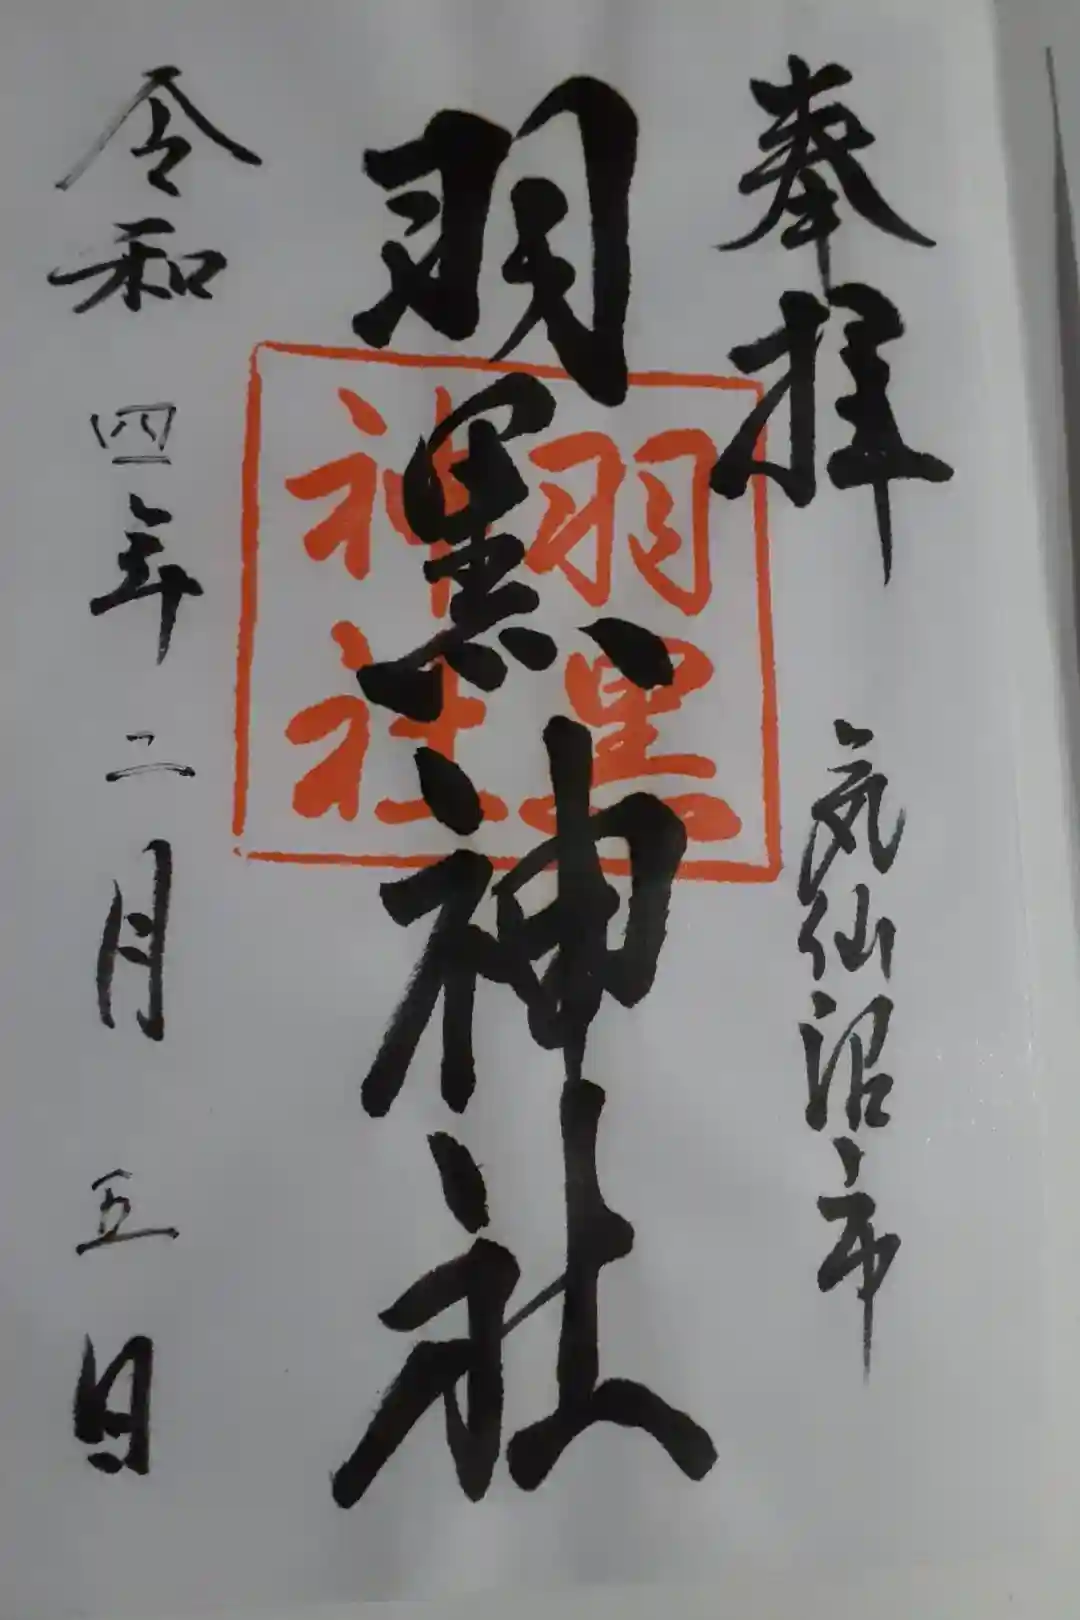 奉拝
気仙沼市
羽黒神社
羽黒
神社
令和四年二月五日